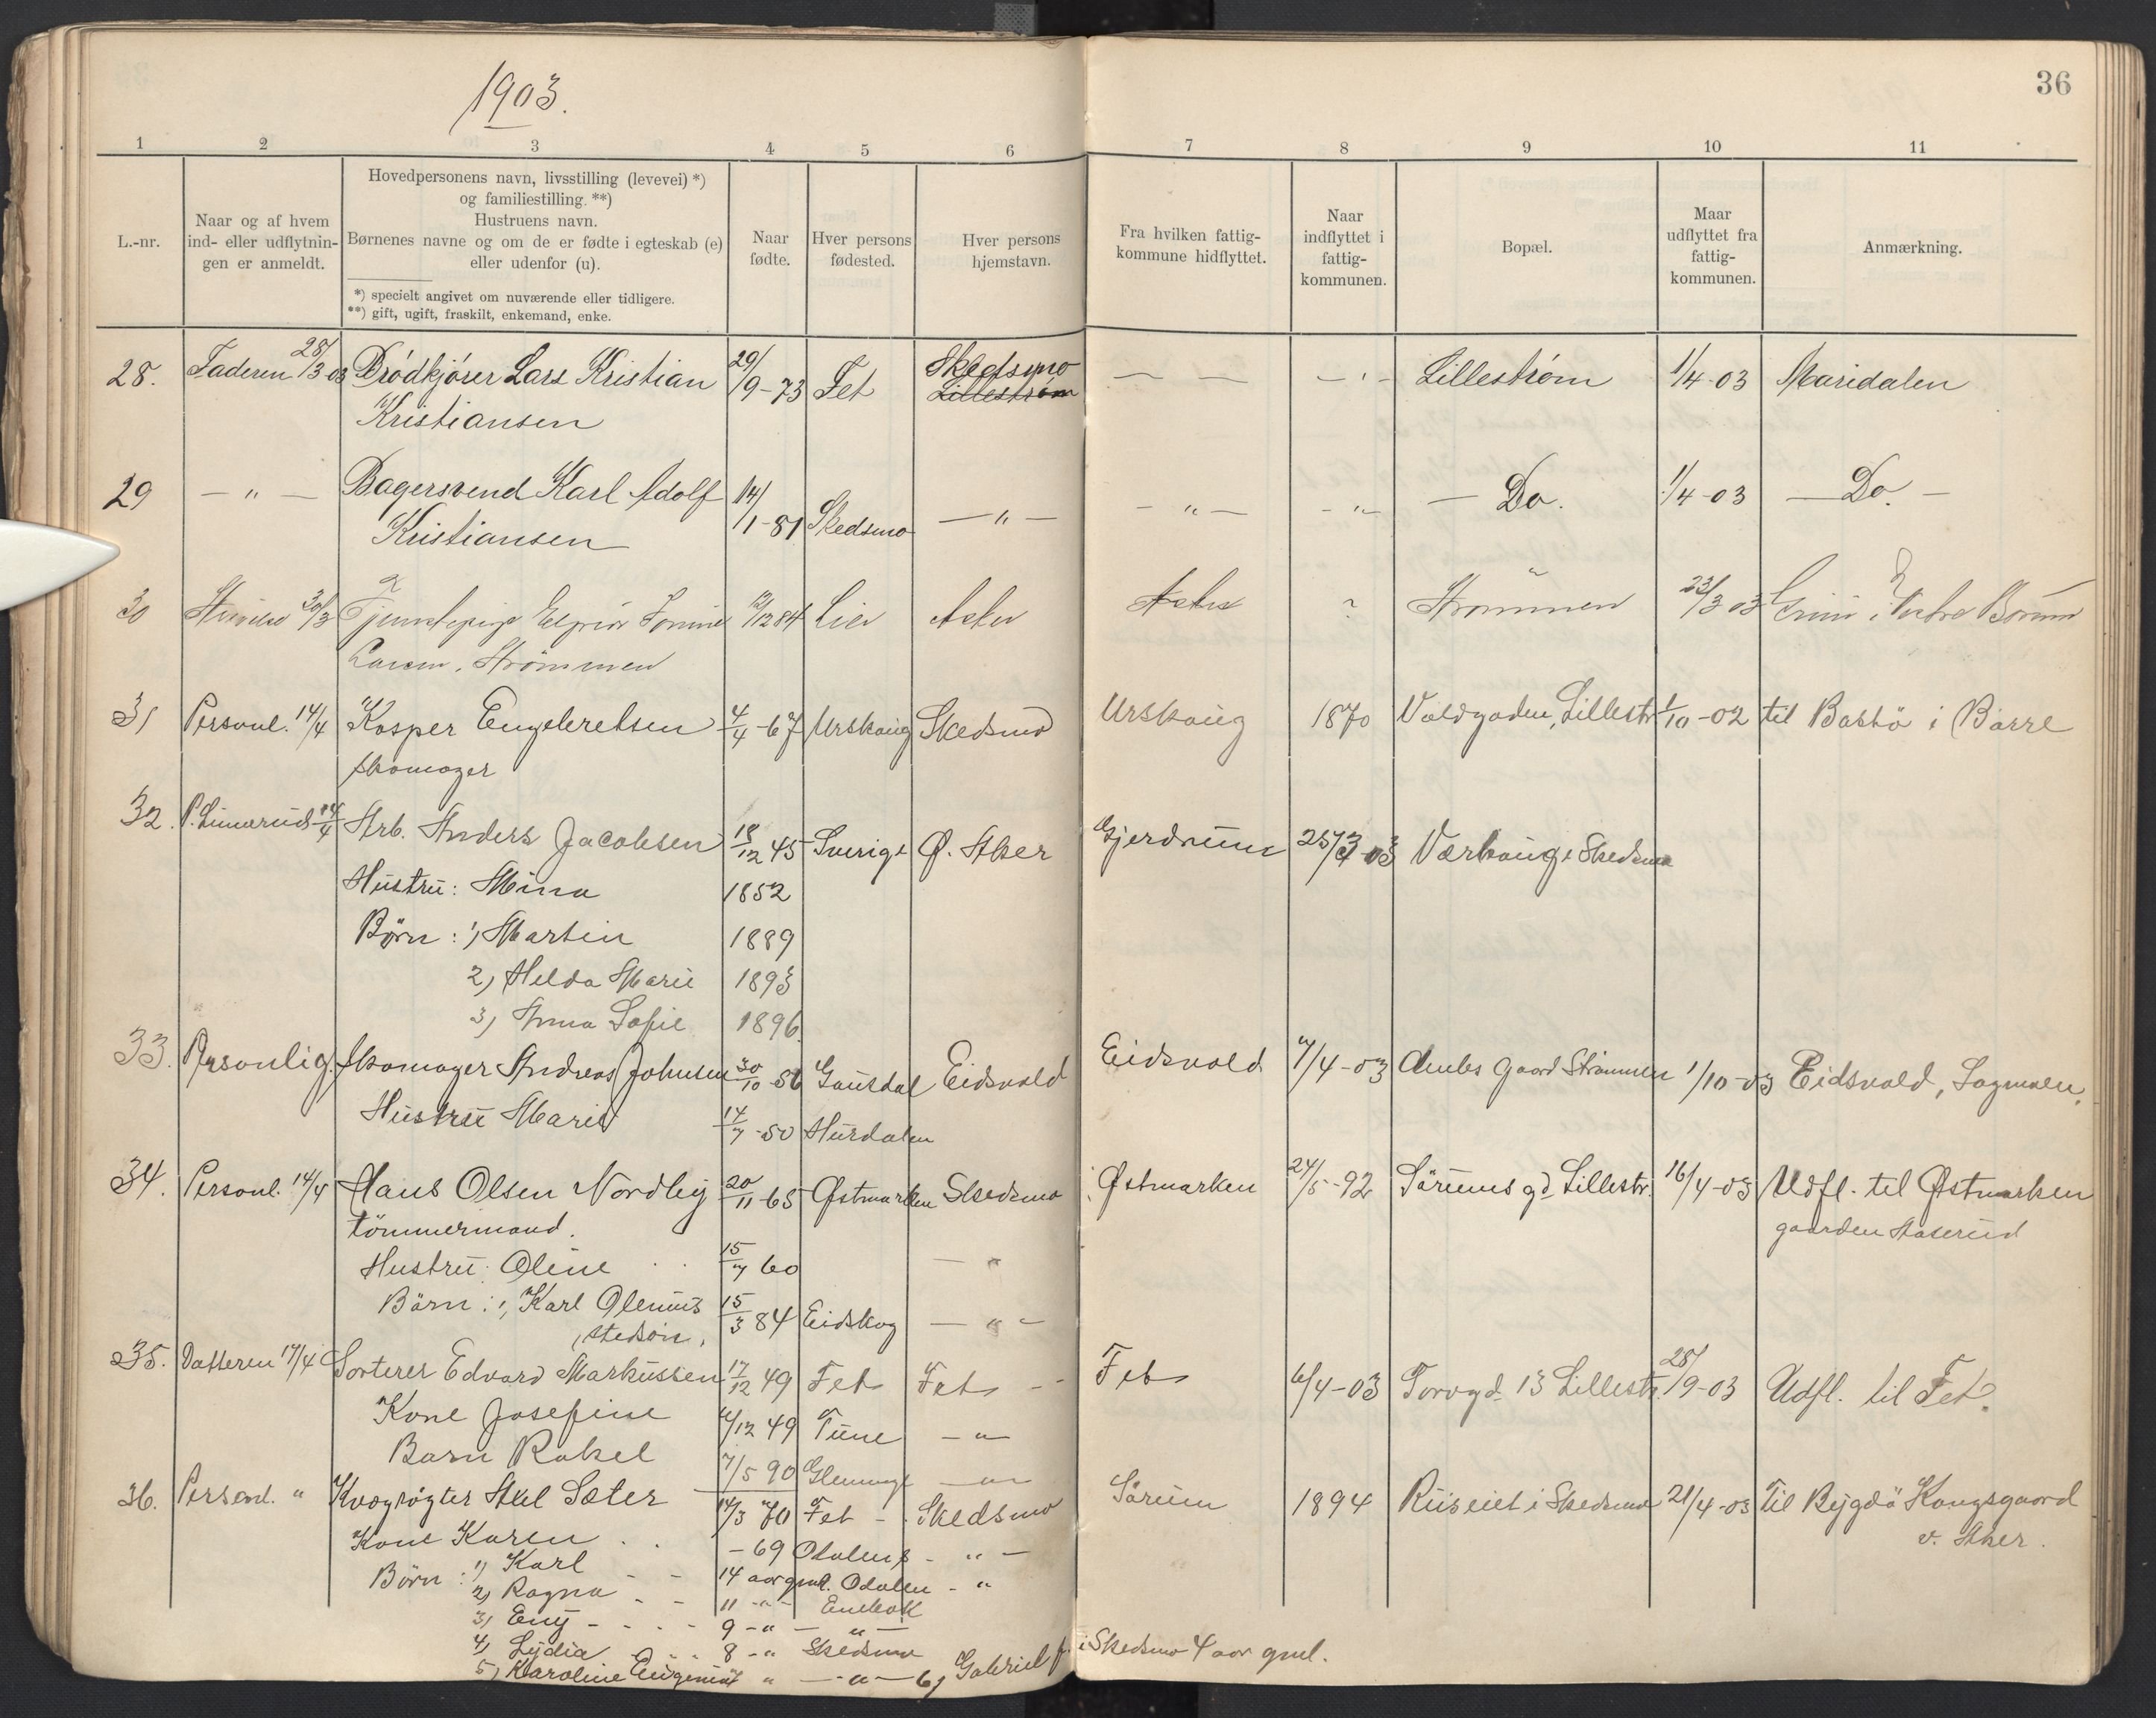 1903.
36
1 2 3 4 5 6 7 8 9 10 11
L.-nr.
Naar og af hvem
ind- eller udflytnin-
gen er anmeldt.
Hovedpersonens navn, livsstilling (levevei) *)
og familiestilling. **)
Hustruens navn.
Børnenes navne og om de er fødte i egteskab (e)
eller udenfor (u).
*) specielt angivet om nuværende eller tidligere.
**) gift, ugift, fraskilt, enkemand, enke.
Naar
fødte.
Hver persons
fødested.
Hver persons
hjemstavn.
Fra hvilken fattig-
kommune hidflyttet.
Naar
indflyttet i
fattig-
kommunen.
Bopæl.
Maar
udflyttet fra
fattig-
kommunen.
Anmærkning.
28. Faderen 28/3-03 Brødkjører Lars Kristian 29/9-73 Fet Skedsmo Lillestrøm — — — " — Lillestrøm 1/4-03 Maridalen
Kristiansen
29 — " — Bagersvend Karl Adolf 14/1-81 Skedsmo — " — — " — — " — — Do. 1/4-03 — Do. —
Kristiansen
30 30/3 Tjenestepige 12/12 84 Lier Asker Asker ? Strømmen 23/3 03 i Vestre Bærum
Strømmen
31 Personl. 14/4 Kasper Engebretsen 4/4-67 Urskoug Skedsmo Urskoug 1870 Voldgaden, Lillestr. 1/10-02 til Bastö i Borre
skomager
32. 14/4 Arb. Anders Jacobsen 18/12 45 Sverige Ø. Aker Gjerdrum 25/3-03 Skedsmo
Hustru: Mina 1852
Börn: 1) Martin 1889
2) Helda Marie 1893
3) Anna Sofie 1896
33. Personlig. Skomager Andreas Johnsen 30/10-56 Gausdal Eidsvold Eidsvold 7/4-03 Gaard Strömmen 1/10-03 Eidsvold, Sagmoen.
Hustru Marie 14/7-50 Hurdalen
34. Personl. 14/4 Hans Olsen Nordby 20/11-65 Østmarken Skedsmo Østmarken 24/5-92 Sörums gd Lillestr. 16/4-03 Udfl. til Østmarken
tömmermand. gaarden Aaserud
Hustru: Oline 15/7 60 — " —
Börn: 1, Karl Olenius 15/3 84 Eidskog — " —
stedsön,
35. Datteren 17/4 Sorterer Edvard Markussen 17/12 49 Fet Fet Fet 6/4-03 Torvgd. 13 Lillestr. 28/9-03 Udfl. til Fet.
Kone Josefine 6/12 49 Tune — " —
Barn Rakel 7/5 90 Glemminge — " —
36. Personl. " Kvægrøgter Axel Sæter 14/3 70 Fet - Skedsmo Sörum 1894 Riiseiet i Skedsmo 21/4-03 Til Bygdö Kongsgaard
Kone Karen - 69 Odalen - " — v. Aker.
Börn: 1) Karl 14 aar gml. Odalen - "
2) Ragna 11 - " - Enebak
3) Eng 9 - " — " —
4) Lydia 8 - " Skedsmo
5) Karoline Eugenie 7 " — " — 6) Gabriel f. i Skedsmo 4 aar gml.